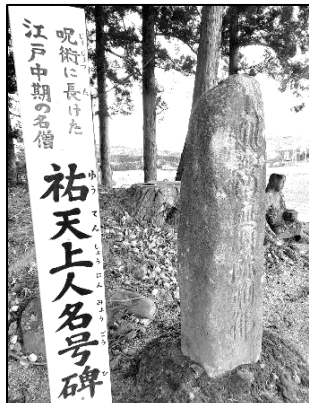 呪術に長けた
じゅじゅつ た
江戸中期の名僧
祐天上人名号碑
ゆうてんしょうにんみょうごうひ